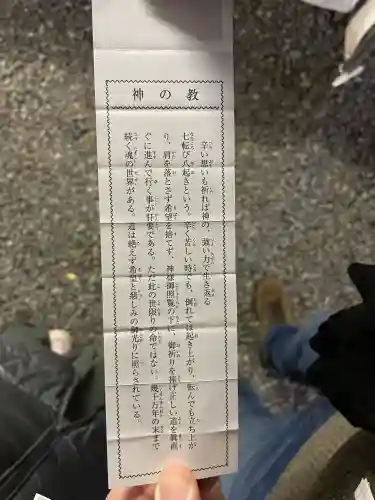 神の教
辛い思いも祈れば神の、強い力で生き返る
七転び八起きという。辛く苦しい時でも、倒れては起き上がり、転んでも立ち上が
り、肩を落とさず希望を捨てず、神様御照覧の下に、御祈りを捧げ正しい道を真直
ぐに進んで行く事が肝要である。ただ此の世限りの命ではない。幾十万年の末まで
続く魂の世界がある。道は絶えず希望と慈しみの御光りに照らされている。